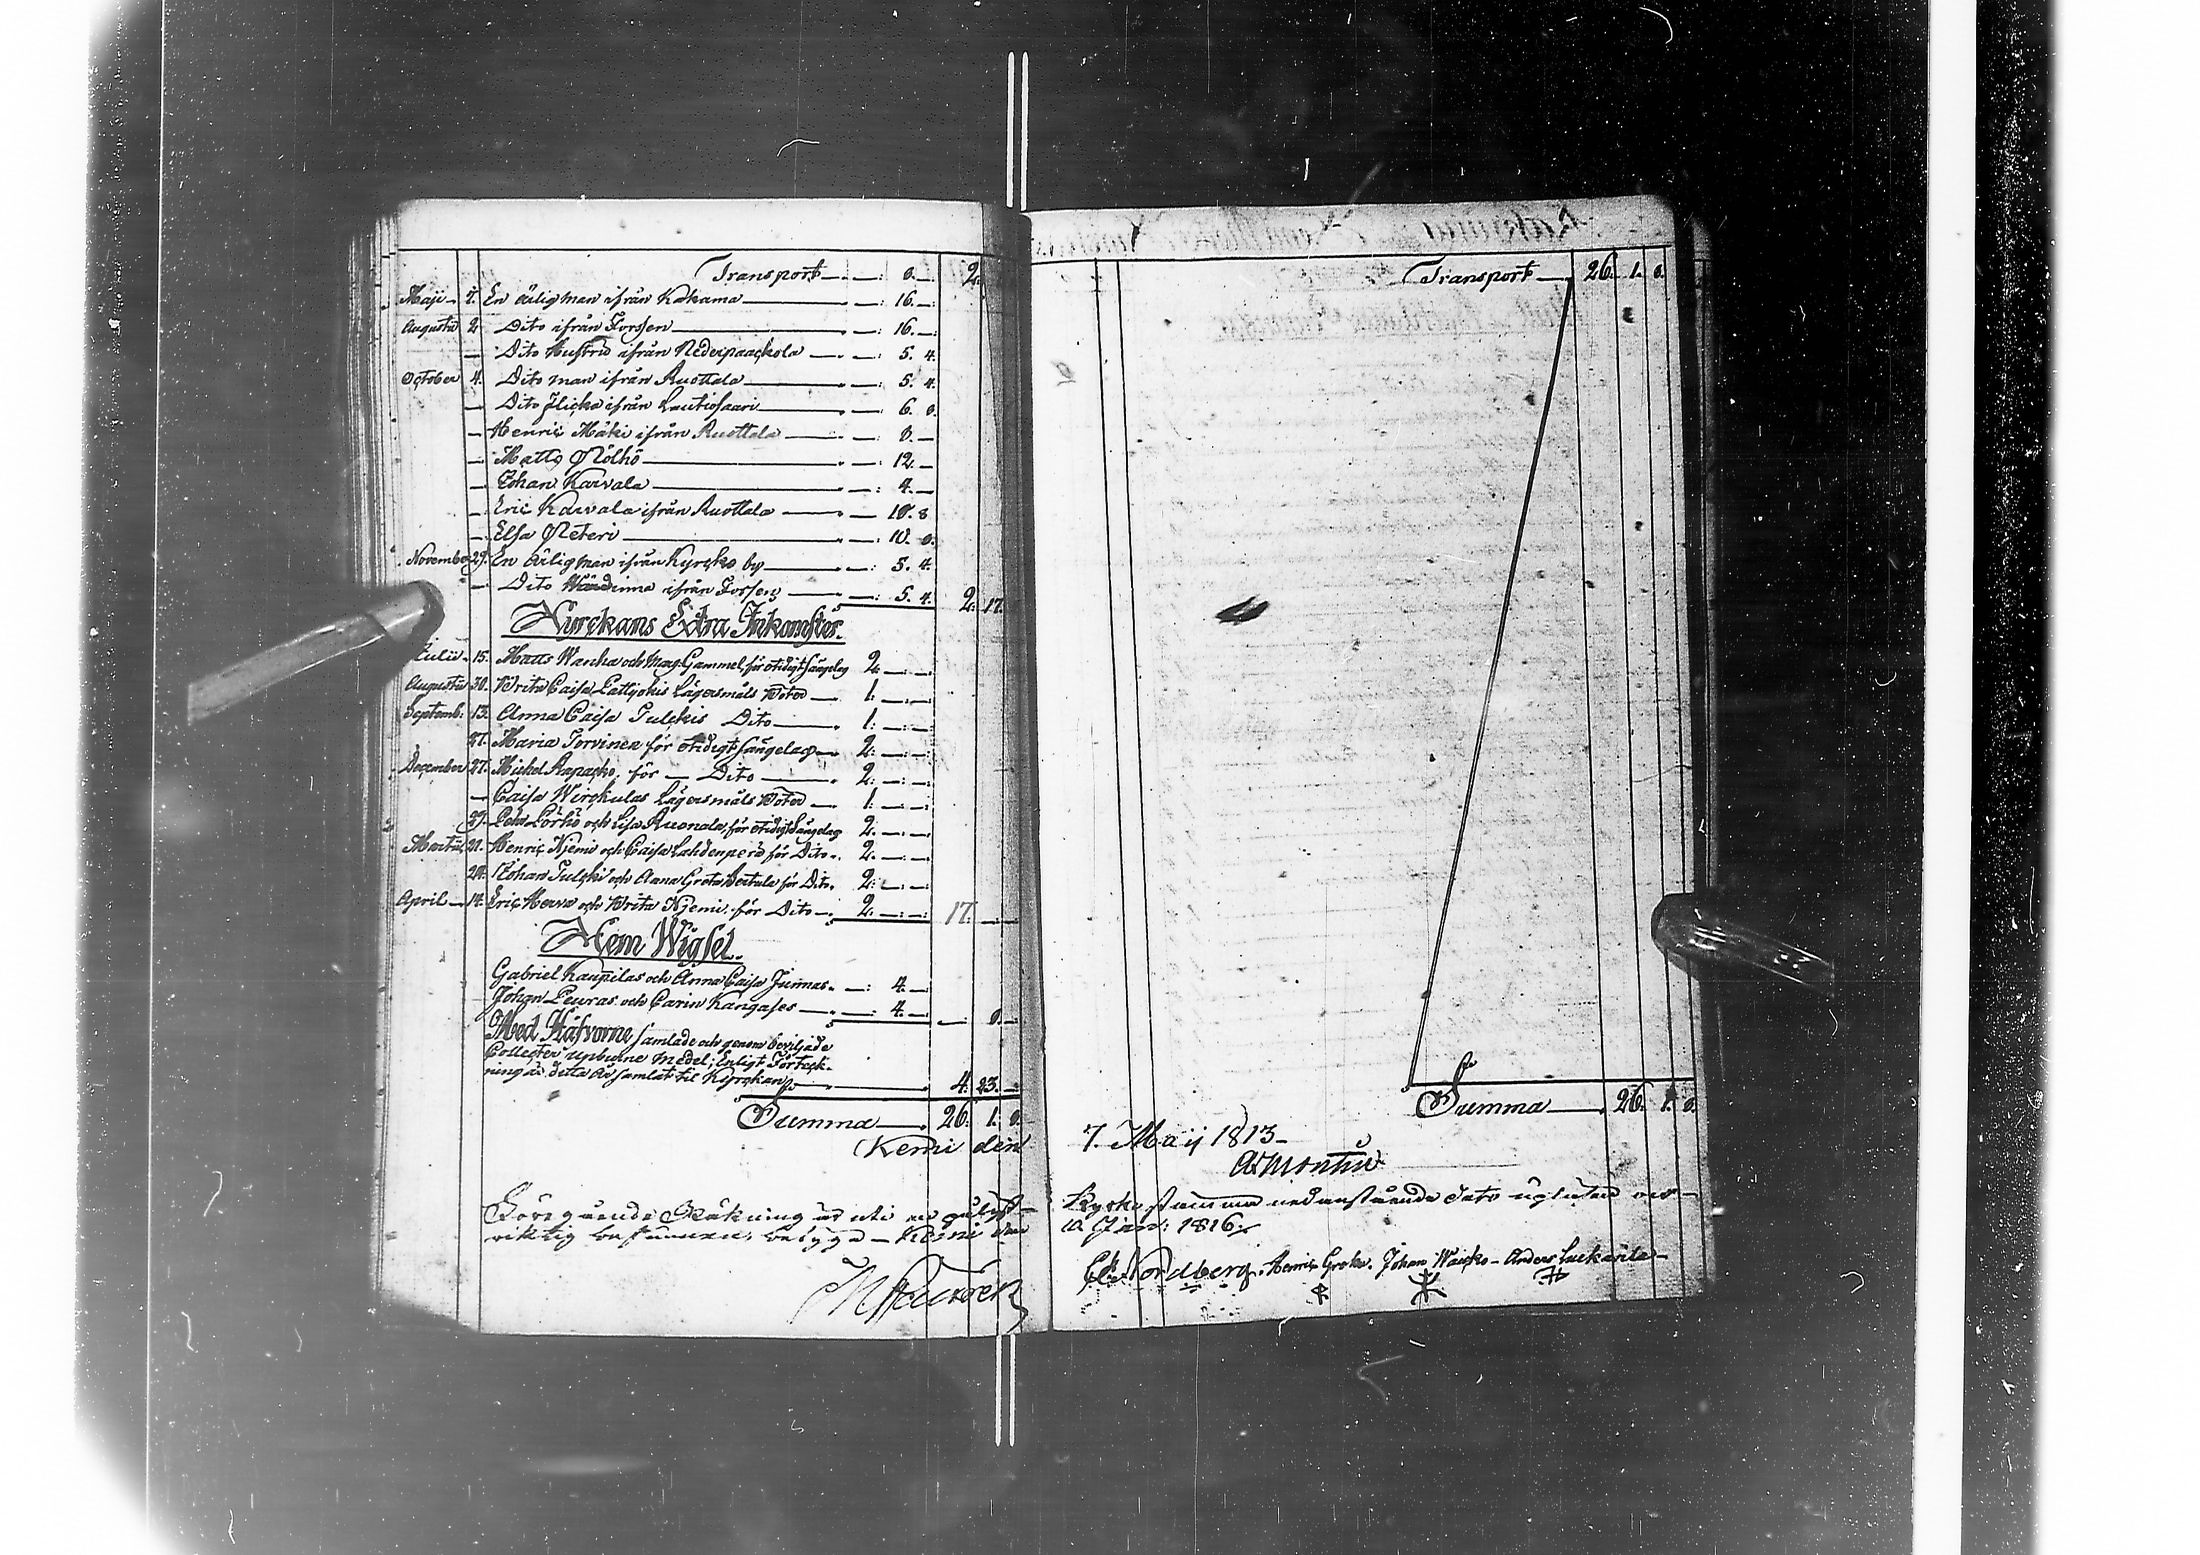 Transport — . — : 8. — 2.
Maji — 7. En ärlig man ifrån Kakama — : 16. —
Augusti 2. Dito ifrån Forssen — : 16. —
— Dito Hustru ifrån Nederpaackola — : 5. 4.
October 4. Dito man ifrån Ruottala — : 5. 4.
— Dito Flicka ifrån Lautiosaari — : 6. 8.
— Henric Mäki ifrån Ruottala — : 8. —
— Matts Pölhö — : 12. —
— Johan Karvala — : 4. —
— Eric Karvala ifrån Ruottala — 10. 8
— Elsa Peteri — : 10. 8.
November 29. En ärlig man ifrån Kyrcko by — : 5. 4.
— Dito Wärdinna ifrån Forssen — : 5. 4. 2. 17.
Kyrckans Extra Inkomster.
Julii — 15. Matts Wanha och Marg: Gammel, för otidigt sängelag 2. — . —
Augusti 30. Brita Caisa Lägersmåls Böter — 1. — . —
Septemb: 13. Anna Caisa Julckis Dito — 1: — . —
27. Maria Torvinen för otidigt sängelag — 2: — . —
December 27. Michel Rapacko, för — Dito — 2: — . —
— Caisa Wirckulas Lägersmåls Böter — 1: — . —
29. Pehr Lörhö och Lisa Ruonala, för otidigt sängelag 2: — . —
Martii 21. Henric Niemi och Caisa Lahdenperä för Dito. 2: — . —
24. Johan Julcki och Anna Greta för Dito. 2: — . —
April — 14. Eric Herva och Brita Niemi för Dito — 2. — . — 17. — . —
Hem Wigsel.
Gabriel Kaupilas och Anna Caisa Junnas. — : 4. —
Johan Peuras och Carin Kangases — : 4. — — . 8. —
Med Håfvorne samlade och genom beviljade
Collecter upburne medel; Enligt Förteck-
ning är detta år samlat til Kyrckan — 4. 23. —
Summa — 26. 1. 8.
Kemi den
Föregående Räkning är uti
riktig befunnen, betyga — Kemi den
Transport — 26. 1. 8.
Summa — 26. 1. 8.
7. Maij 1813 —
Kyrko stämma nedanstående dato
10 Jan: 1816.
Nordberg. Henric Johan Waicko — Anders